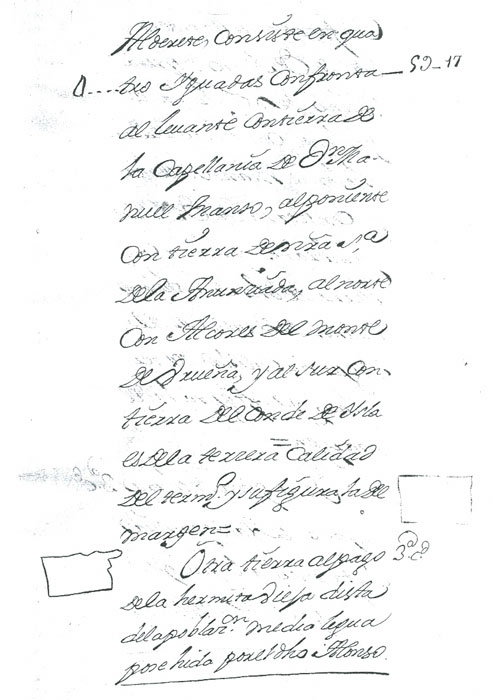 Alderete, Consiste en qua
tro Yguadas Confronta 5º-17
al levante Con tierra de
la Capellania de Dn. Ma-
nuel Manso, al poniente
Con tierra de nra. Sª
de la Anunziada, al norte
Con Alcores del monte
de Urueña, y al sur Con
tierra del Conde de Isla
es de la terzera Calidad
del termº. y su figura, la del
margen=
Otra tierra al pago 3ª cd
de la hermita Vieja dista
de la poblazon. media legua
posehida por el dho Alonso.